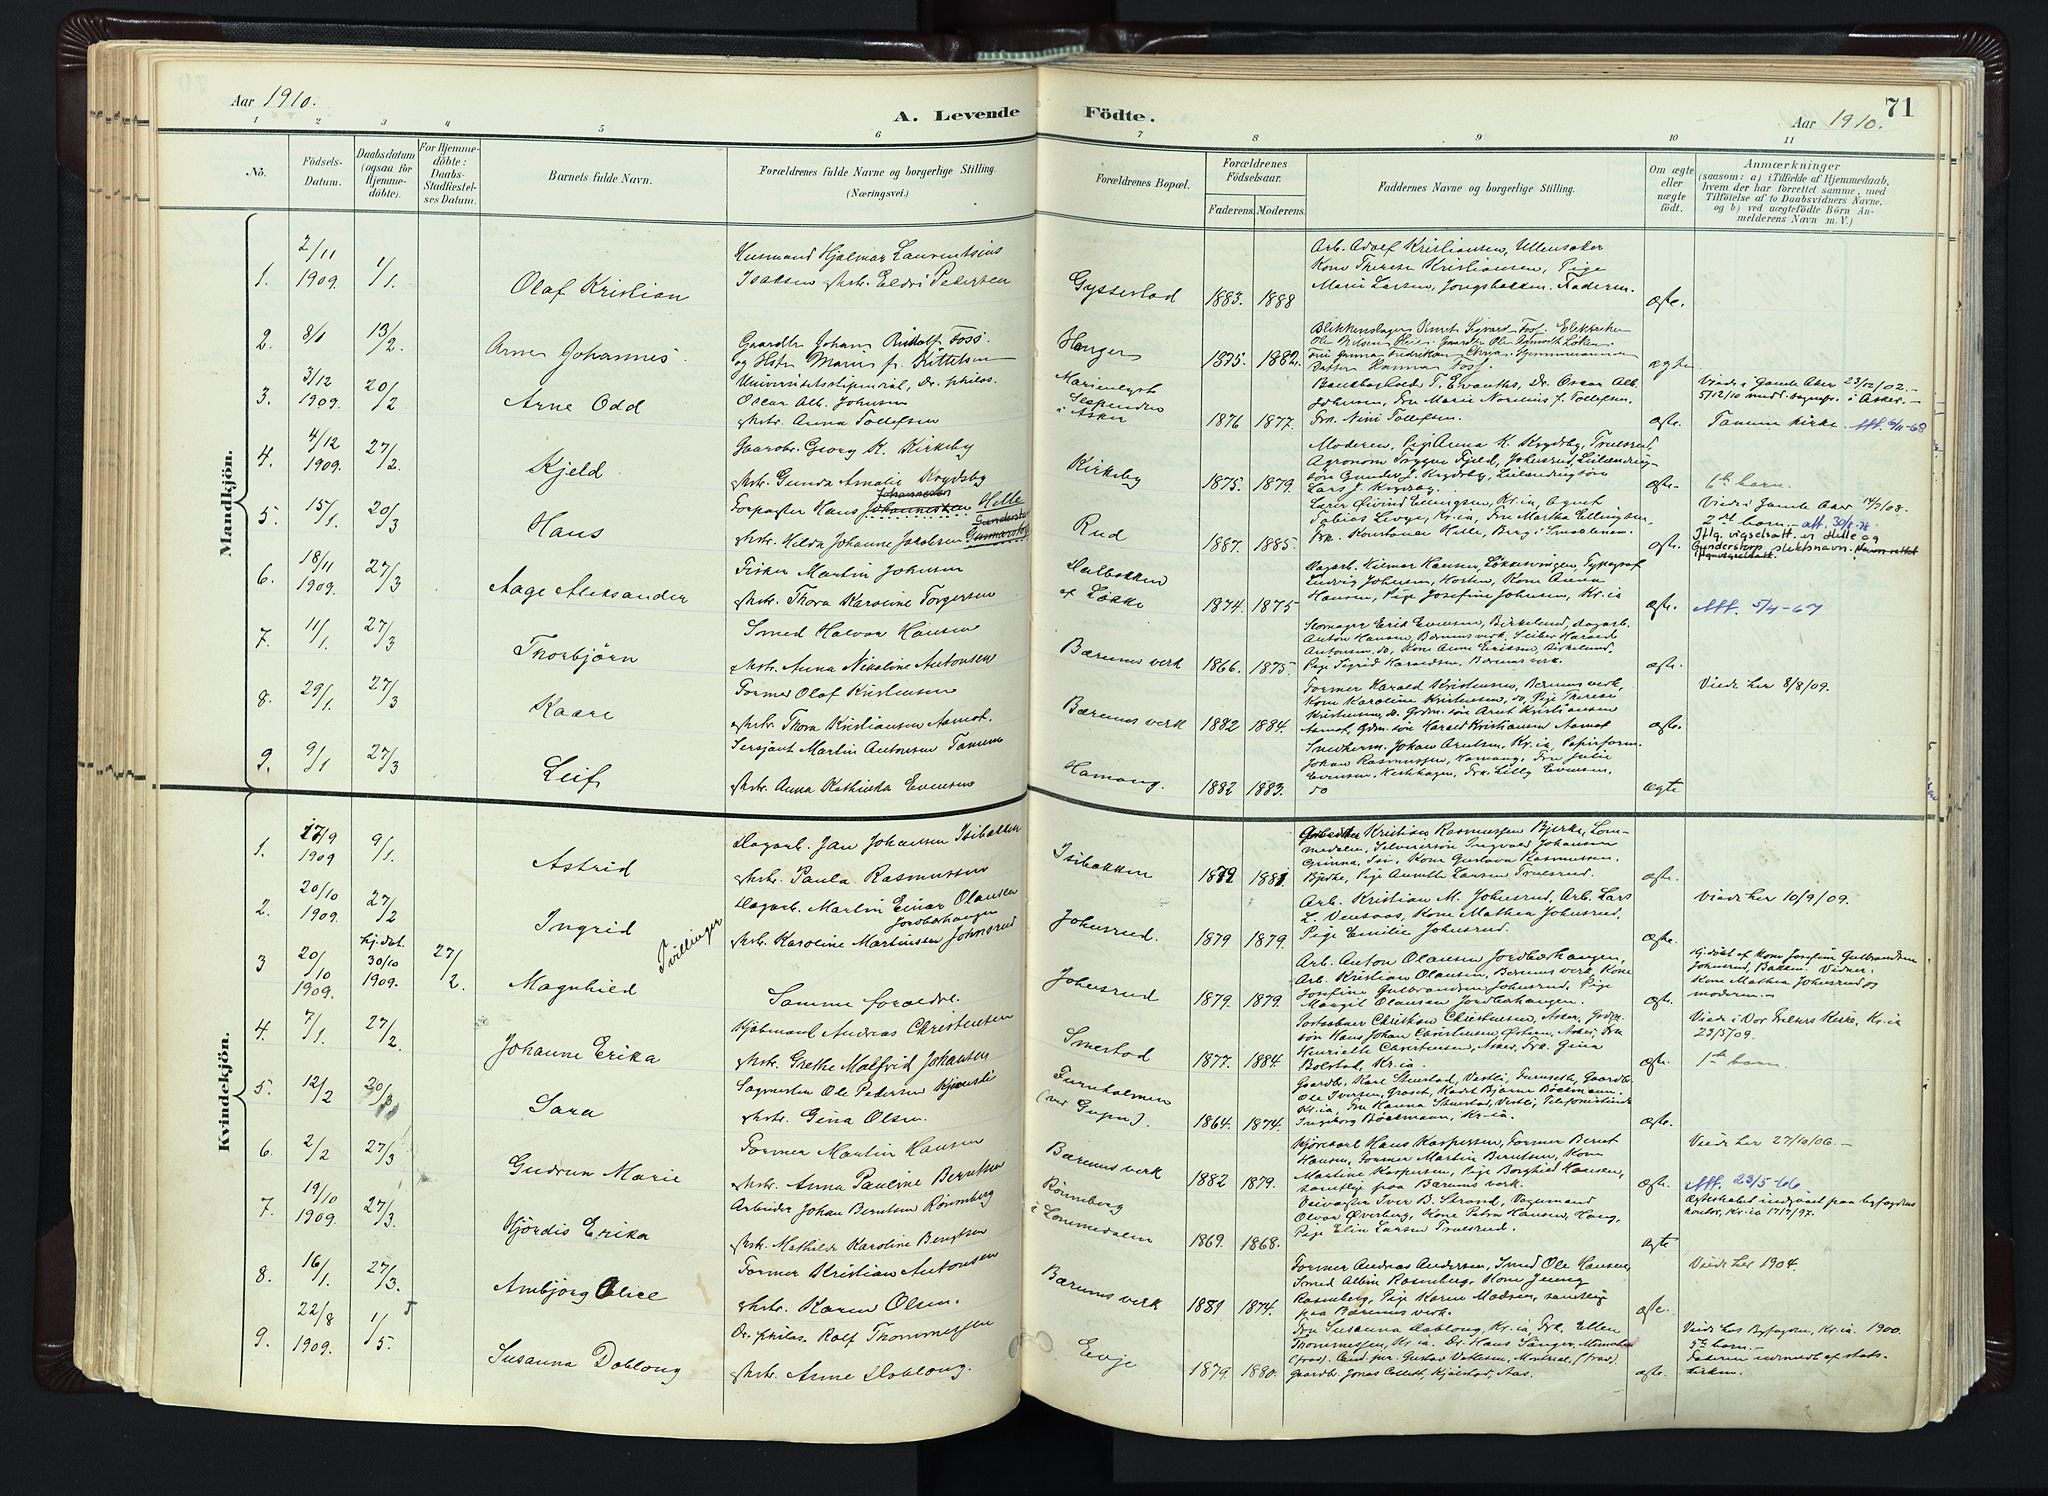 Aar 1910.
A. Levende
Födte.
Aar 1910.
71
1 2 3 4 5 6 7 8 9 10 11
No.
Födsels-
Datum.
Daabsdatum
(ogsaa for
Hjemme-
döbte).
For Hjemme-
döbte:
Daabs-
Stadfæstel-
ses Datum.
Barnets fulde Navn.
Forældrenes fulde Navne og borgerlige Stilling.
(Næringsvei.)
Forældrenes Bopæl.
Forældrenes
Födselsaar.
Faderens. Moderens.
Faddernes Navne og borgerlige Stilling.
Om ægte
eller
uægte
födt.
Anmærkninger
(saasom: a) i Tilfælde af Hjemmedaab,
hvem der har forrettet samme, med
Tilföielse af to Daabsvidners Navne,
og b) ved uægtefödte Börn An-
melderens Navn m. V.)
Mandkjön.
1. 2/11 1909. 1/1 Olaf Kristian
Husmand Hjalmar Laurentsius
Isaksen
Pedersen
Gysterstad 1883. 1888
Arb. Adolf Kristiansen, Ullensaker
Kone Therese Kristiansen, Pige
Marie Larsen, Jongsbakken. Faderen.
ægte.
2. 8/1 13/2 Arne Johannes.
Gaardbr. Johan Rudolf Foss.
og Hstr. Marie f. Kittelsen
1875.
ægte.
3. 3/12 1909. 20/2 Arne Odd
Universitetsstipendiat, Dr. philos.
Oscar Alb. Johnsen
Hstr. Anna Tollefsen
Marienlyst
i Asker 1876 1877.
Dr. Oscar Alb.
Johnsen, Fru Marie
Frk. Nini Tollefsen.
ægte.
Viede i Gamle Aker 23/12/02.-
Tanum kirke.
4. 4/12 1909. 27/2. Kjeld
Gaardbr. Georg K. Kirkeby
Hstr. Gunda Amalie Krydsby
Kirkeby 1875. 1879.
Moderen, Pige Anna K. Krydsby,
Agronom Trygve Fjeld, Johnsrud,
Lars J. Krydsby.
ægte. 1ste barn.
5. 15/1. 20/3 Hans
Forpagter Hans Johannesen Helle
Hstr. Hilda Johanne Jacobsen
Rud 1887. 1885.
Lærer Eivind Ellingsen, Kr.ia,
Fru Martha Ellingsen,
Frk. Konstanse Helle, Berg i Smaalenene.
ægte.
Viede i Gamle Aker
2det barn.- att. 30/8-78.
Iflg. vigselsatt. er Helle og
Gunderstorp slektsnavn.
6. 18/11 1909. 27/3 Aage Aleksander
Fisker Martin Johnsen
Hstr. Thora Karoline Torgersen
Dalbakken
af Løkke 1874. 1875
Hilmar Hansen, Løkkesvingen, Typograf
Ludvig Johnsen, Horten, Kone Anna
Hansen, Pige Josefine Johnsen, Kr.ia
ægte. Att. 5/4-67
7. 11/1. 27/3 Thorbjörn
Smed Halvor Hansen
Hstr. Anna Nikoline Antonsen
Bærums verk 1866. 1875.
Skomager Erik Evensen, Birkelund, dagarb.
Anton Hansen, Bærums verk,
Antonsen, do, Kone Anne Eriksen, Birkelund,
Pige Sigrid Haraldsen, Bærums verk.
ægte.
8. 29/1. 27/3 Kaare
Former Olaf Kristensen
Hstr. Thora Kristiansen Aamot.
Bærums verk 1882 1884.
Former Harald Kristensen, Bærums verk,
Kone Karoline Kristensen, do, Pige Therese
Kristensen, do. Gdm. søn Arnt Kristiansen
Aamot, Gdm. søn Harald Kristiansen Aamot
ægte. Viede her 8/8/09.
9. 9/1 27/3 Leif
Sersjant Martin Antonsen Tanum
Hstr. Anna Kathinka Evensen
Hamang. 1882 1883.
Snedkerm. Johan Arntsen, Kr.ia, Papirform.
Johan Rasmussen, Hamang, Fru Julie
Evensen, Fru Lilly Evensen,
do
ægte
Kvindekjön.
1. 17/9 1909 9/1. Astrid
Dagarb. Jan Johansen Isibakken
Hstr. Paula Rasmussen
Isibakken
Kristian Rasmussen Bjerke, Lom-
medalen, Ingvald Johansen
Kone Gustava Rasmussen.
Bjerke, Pige Anette Larsen Truelsrud.
ægte.
2. 20/10 1909. 27/2 Ingrid
Tvillinger
Dagarb. Martin Einar Olausen
Jordbærhaugen
Hstr. Karoline Martinsen Johnsrud
Johnsrud. 1879 1879.
Arb. Kristian M. Johnsrud, Arb. Lars
L. Venaas, Kone Mathea Johnsrud,
Pige Emilie Johnsrud.
ægte. Viede her 10/9/09.
3 20/10 1909. hj.døt. 30/10 1909. 27/2. Magnhild
Samme forældre.
Johnsrud 1879. 1879.
Arb. Anton Olausen Jordbærhaugen,
Arb. Kristian Olausen, Bærums verk, Kone
Josefine Gulbrandsen Johnsrud, Pige
Margit Olausen Jordbærhaugen.
ægte.
Hj.døbt af Kone Josefine Gulbrandsen
Johnsrud, Bakken. Vidner.
Kone Mathea Johnsrud og
moderen.-
4. 7/1. 27/2. Johanne Erika
Kjøbmand Andreas Christensen
Hstr. Grethe Malfrid Johansen
Smestad 1877. 1884.
Postaabner Christian Christensen, Asker,
søn Hans Johan Christensen Østern, Asker, Fru
Henriette Christensen, Asker, Frk. Gina
Bolstad, Kr.ia.
ægte.
Viede i Vor Frelsers Kirke, Kr.ia
23/5/09.
1ste barn.
5. 12/2 20/3 Sara
Sagmester Ole Pedersen
Hstr. Gina Olsen.
Furuholmen
1864. 1874.
Ole Iversen,
Kr.ia, Fru Hanna
Ingeborg Böckmann, Kr.ia.
ægte.
6 2/2 27/3 Gudrun Marie
Former Martin Hansen
Hstr. Anna Pauline Berntsen
Bærums verk 1882 1879.
Kjørekarl Hans Kaspersen, Former Bernt
Hansen, Former Martin Berntsen, Kone
Martine Kaspersen, Pige Borghild Hansen,
samtlige paa Bærums verk.
ægte.
Viede her 27/10/06.-
Att. 23/5-66
7. 19/10 1909. 27/3. Hjördis Erika
Arbeider Johan Berntsen Rønneberg
Hstr. Mathilde Karoline Bengtsen
Rönneberg
i Lommedalen 1869. 1868.
Veivogter Iver B. Strand, Vognmand
Olvar Øverberg, Kone Petra Hansen, Haug,
Pige Elin Larsen Truelsrud.
ægte
Ægteskabet indgaaet paa byfogdens
kontor, Kr.ia 17/7/97.
8. 16/1. 27/3. Ambjörg Alice
Former Kristian Antonsen
Hstr. Karen Olsen.
Bærums verk 1881 1874.
Former Andreas Andersen, Smed Ole Hansen,
Smed Albin Rosenberg, Kone Jenny
Rosenberg, Pige Karen Madsen, samtlige
paa Bærums verk.
ægte. Viede her 1904.
9. 22/8 1909. 1/5 Susanna Dobloug
Dr. philos. Rolf Thommessen
Hstr. Anne Dobloug.
Evje 1879. 1880.
Fru Susanna Dobloug, Kr.ia, Frk. Ellen
Thommessen, Kr.ia. Dr. Hans Sänger,
(frav.) Cand. jur. Gustav Vetlesen, Montreal, (frav.)
Gaardbr. Jonas Collett, Kjølstad, Aas.
ægte.
Viede hos Byfogden, Kr.ia. 1900.
5te barn.-
Faderen udmeldt af stats-
kirken.